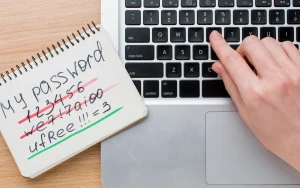 My password
123456
we7!7a!00
ufree!!!=3